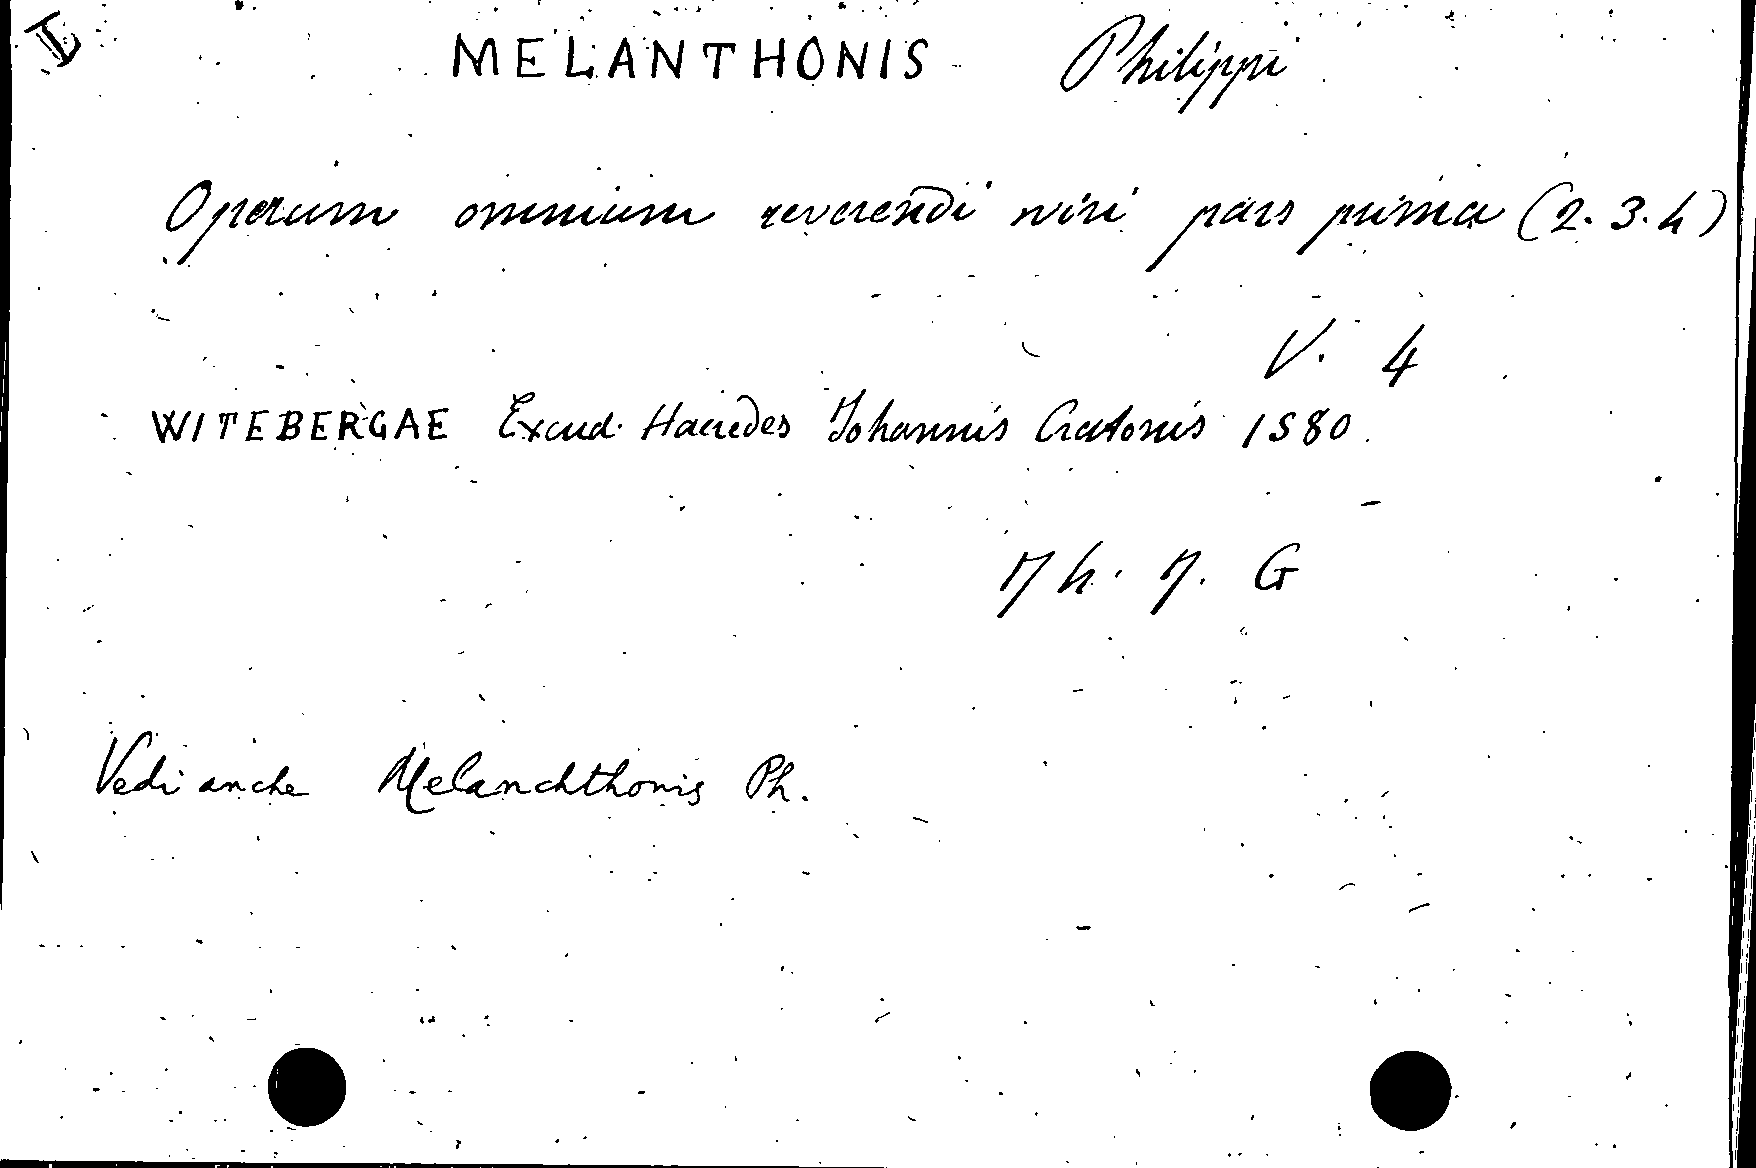 I
MELANTHONIS Philippi
Operum omnium reverendi viri pars prima (2. 3. 4)
V. 4
WITEBERGAE Excud. Haeredes Johannis Cratonis 1580.
7 4. 7. G
Vedi anche Melanchthonis Ph.